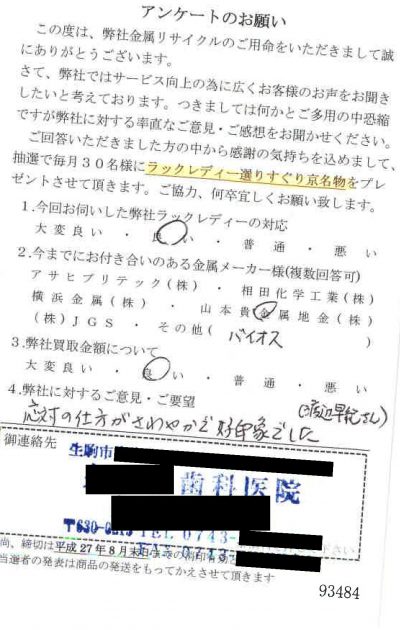 アンケートのお願い
この度は、弊社金属リサイクルのご用命をいただきまして誠
にありがとうございます。
さて、弊社ではサービス向上の為に広くお客様のお声をお聞き
したいと考えております。つきましては何かとご多用の中恐縮
ですが弊社に対する率直なご意見・ご感想をお聞かせください。
ご回答いただきました方の中から感謝の気持ちを込めまして、
抽選で毎月30名様にラックレディー選りすぐり京名物をプレ
ゼントさせて頂きます。ご協力、何卒宜しくお願い致します。
1.今回お伺いした弊社ラックレディーの対応
大変良い・良い・普通・悪い
2.今までにお付き合いのある金属メーカー様(複数回答可)
アサヒプリテック(株)・相田化学工業(株)
横浜金属(株)・山本貴金属地金(株)
(株)JGS・その他(バイオス)
3.弊社買取金額について
大変良い・良い・普通・悪い
4.弊社に対するご意見・ご要望
(渡辺早紀さん)
応対の仕方がさわやかで好印象でした
御連絡先
生駒市
歯科医院
〒630-0213 TEL 0743-
FAX 0743-
尚、締切は平成27年8月末日
当選者の発表は商品の発送をもってかえさせて頂きます
93484